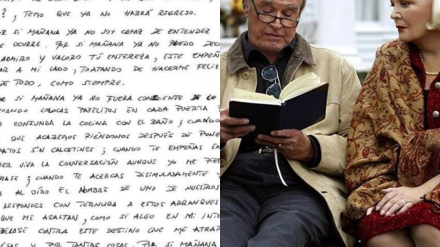 ; TEMO QUE YA NO HABRÁ REGRESO.
SI MAÑANA YA NO SOY CAPAZ DE ENTENDER
OCURRE. POR SI MAÑANA YA NO PUEDO DEC
ADMIRO Y VALORO TU ENTEREZA, ESTE EMPEÑ
A MI LADO, TRATANDO DE HACERME FELIZ
DE TODO, COMO SIEMPRE.
SI MAÑANA YA NO FUERA CONSCIENTE DE LO
PAPELITOS EN CADA PUERTA
CONFUNDA LA COCINA CON EL BAÑO; CUANDO
QUE ACABEMOS RIÉNDONOS DESPUÉS DE PONE
SIN CALCETINES; CUANDO TE EMPEÑAS EN
VIVA LA CONVERSACIÓN AUNQUE YO ME PIE
FRASE; CUANDO TE ACERCAS DISIMULADAMENTE Y
AL OÍDO EL NOMBRE DE UNO DE NUESTROS
RESPONDES CON TERNURA A ESTOS ARRANQUES
QUE ME ASALTAN; COMO SI ALGO EN MI INTE
CONTRA ESTE DESTINO QUE ME ATRAP
Y POR TANTAS COSAS. POR SI MAÑANA